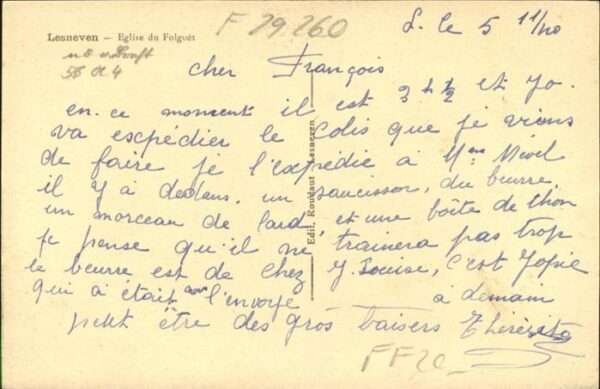 Lesneven - Eglise du Folguët
F 29.260
L. le 5 11/40
56 a 4
cher François
en ce moment il est 2 h ½ et Jo.
va expédier le Colis que je viens
de faire je l'expédie à Mme
il y à dedans, un saucisson, du beurre
un morceau de lard, et une boîte de thon
je pense qu'il ne trainera pas trop
le beurre est de chez Y. Louise, c'est
qui à était l'envoye à demain
petit être des gros baisers Thérèse
Edit. Roudaut - Lesneven
FF20